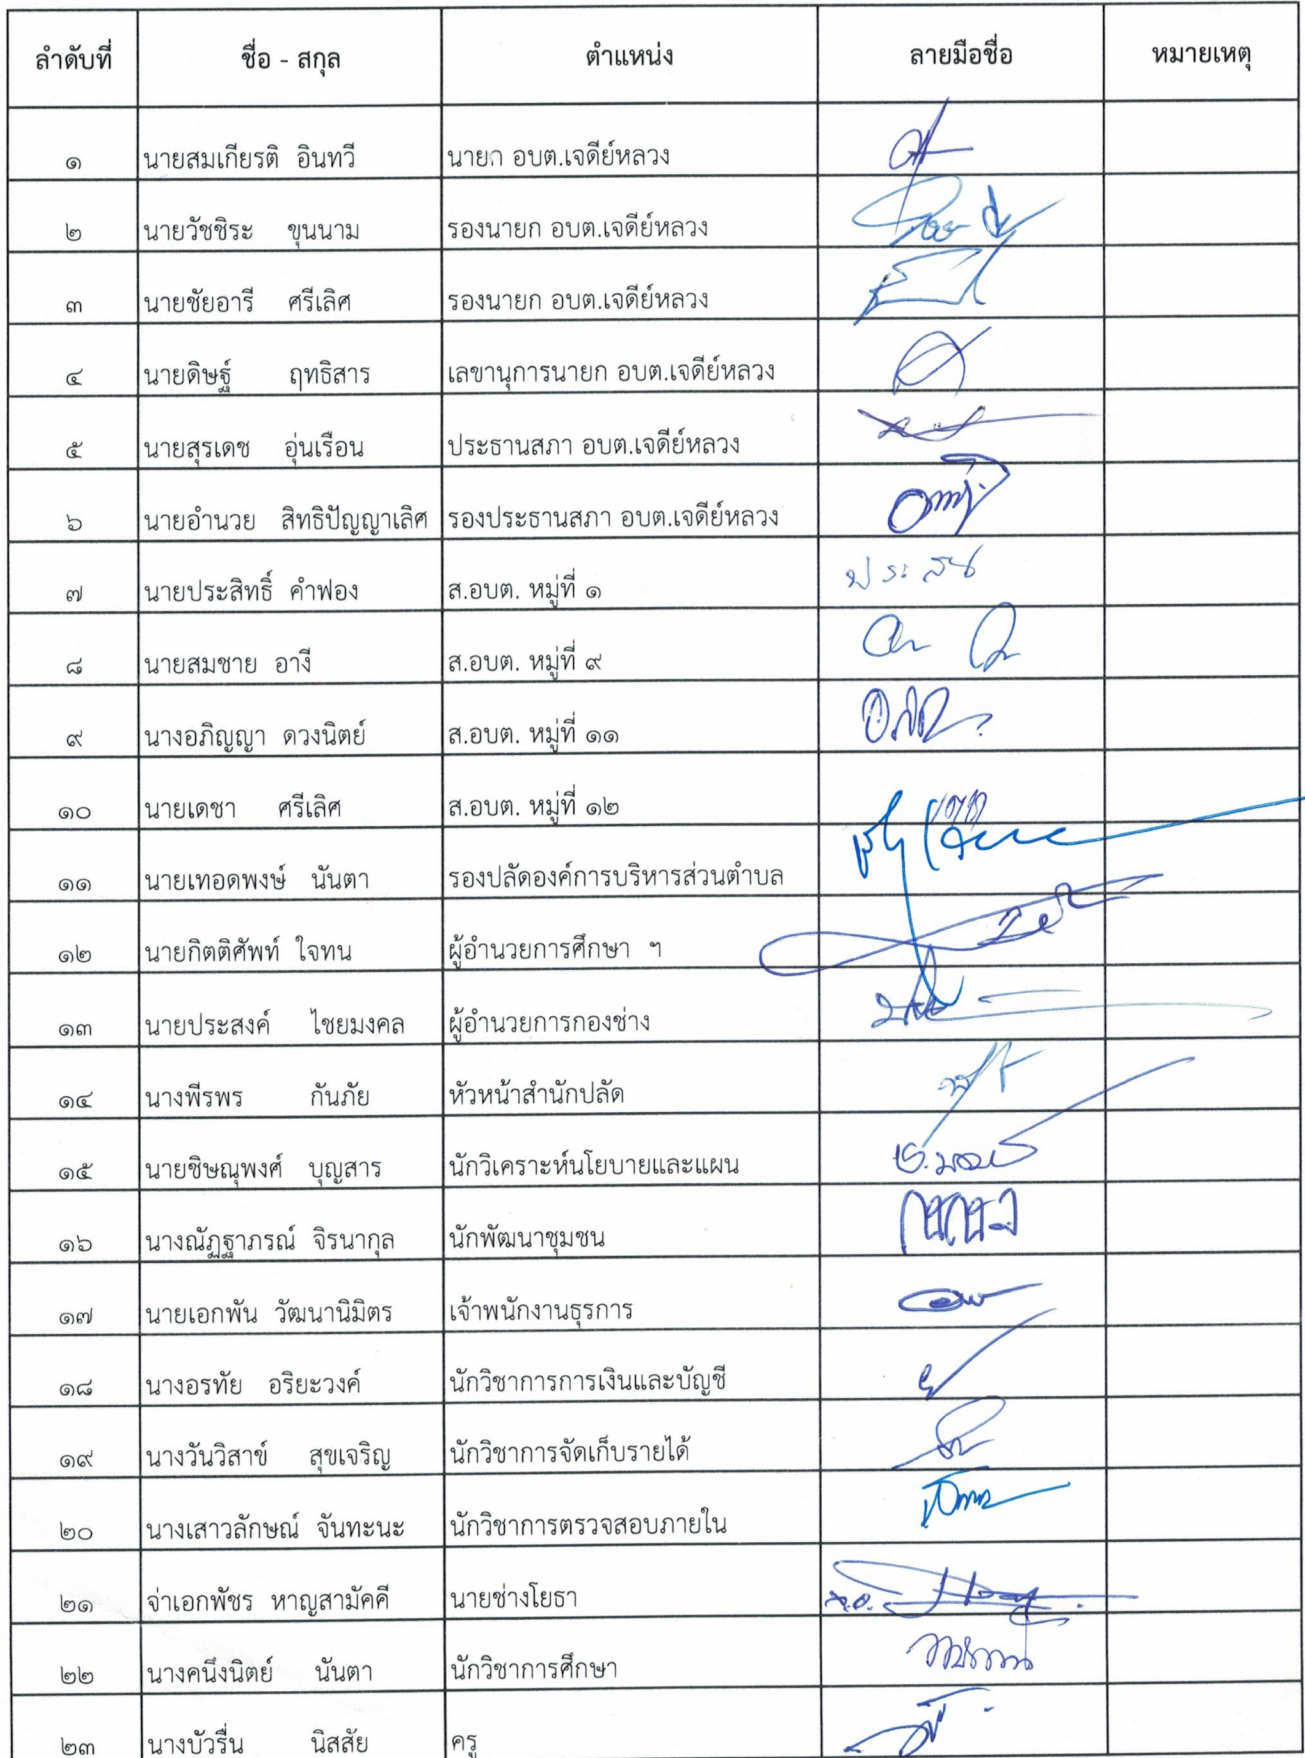 ลำดับที่ ชื่อ - สกุล ตำแหน่ง ลายมือชื่อ หมายเหตุ
๑ นายสมเกียรติ อินทวี นายก อบต.เจดีย์หลวง
๒ นายวัชชิระ ขุนนาม รองนายก อบต.เจดีย์หลวง
๓ นายชัยอารี ศรีเลิศ รองนายก อบต.เจดีย์หลวง
๔ นายดิษฐ์ ฤทธิสาร เลขานุการนายก อบต.เจดีย์หลวง
๕ นายสุรเดช อุ่นเรือน ประธานสภา อบต.เจดีย์หลวง
๖ นายอำนวย สิทธิปัญญาเลิศ รองประธานสภา อบต.เจดีย์หลวง
๗ นายประสิทธิ์ คำฟอง ส.อบต. หมู่ที่ ๑
๘ นายสมชาย อางี ส.อบต. หมู่ที่ ๙
๙ นางอภิญญา ดวงนิตย์ ส.อบต. หมู่ที่ ๑๑
๑๐ นายเดชา ศรีเลิศ ส.อบต. หมู่ที่ ๑๒
๑๑ นายเทอดพงษ์ นันตา รองปลัดองค์การบริหารส่วนตำบล
๑๒ นายกิตติศัพท์ ใจทน ผู้อำนวยการศึกษา ฯ
๑๓ นายประสงค์ ไชยมงคล ผู้อำนวยการกองช่าง
๑๔ นางพีรพร กันภัย หัวหน้าสำนักปลัด
๑๕ นายชิษณุพงศ์ บุญสาร นักวิเคราะห์นโยบายและแผน
๑๖ นางณัฏฐาภรณ์ จิรนากุล นักพัฒนาชุมชน
๑๗ นายเอกพัน วัฒนานิมิตร เจ้าพนักงานธุรการ
๑๘ นางอรทัย อริยะวงค์ นักวิชาการการเงินและบัญชี
๑๙ นางวันวิสาข์ สุขเจริญ นักวิชาการจัดเก็บรายได้
๒๐ นางเสาวลักษณ์ จันทะนะ นักวิชาการตรวจสอบภายใน
๒๑ จ่าเอกพัชร หาญสามัคคี นายช่างโยธา
๒๒ นางคนึงนิตย์ นันตา นักวิชาการศึกษา
๒๓ นางบัวรื่น นิสสัย ครู